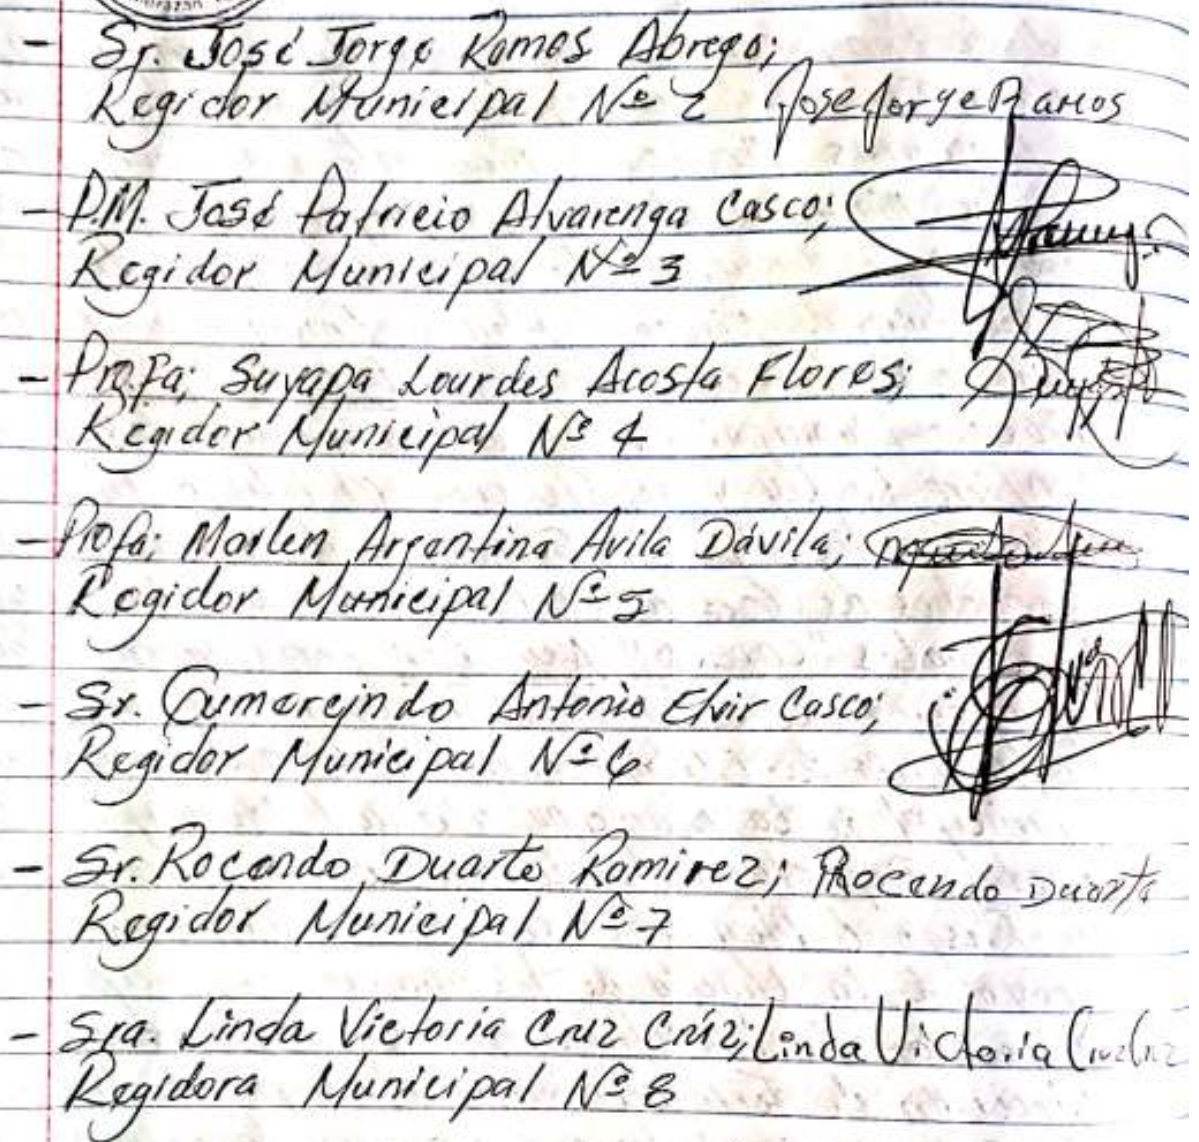 - Sr. José Jorge Ramos Abrego;
Regidor Municipal Nº 2 Jose Jorge Ramos
- P.M. José Patricio Alvarenga Casco;
Regidor Municipal Nº 3
- Profa; Suyapa Lourdes Acosta Flores;
Regidor Municipal Nº 4
- Profa; Marlen Argentina Avila Dávila;
Regidor Municipal Nº 5
- Sr. Gumercindo Antonio Elvir Casco;
Regidor Municipal Nº 6
- Sr. Rocendo Duarte Ramirez; Rocendo Duarte
Regidor Municipal Nº 7
- Sra. Linda Victoria Cruz Crúz; Linda Victoria Cruz Cruz
Regidora Municipal Nº 8